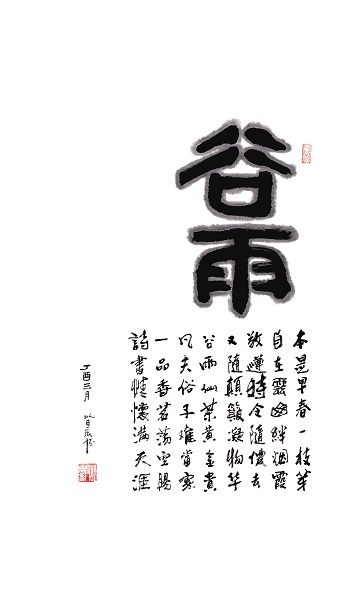 谷雨
本是早春一枝芽
自在靈幽絆烟霞
敬遵時令隨儂去
又隨顛簸凝物华
谷雨仙茶黄金貴
凡夫俗子難當家
一品香茗蕩空腸
詩書情懷滿天涯
丁酉三月